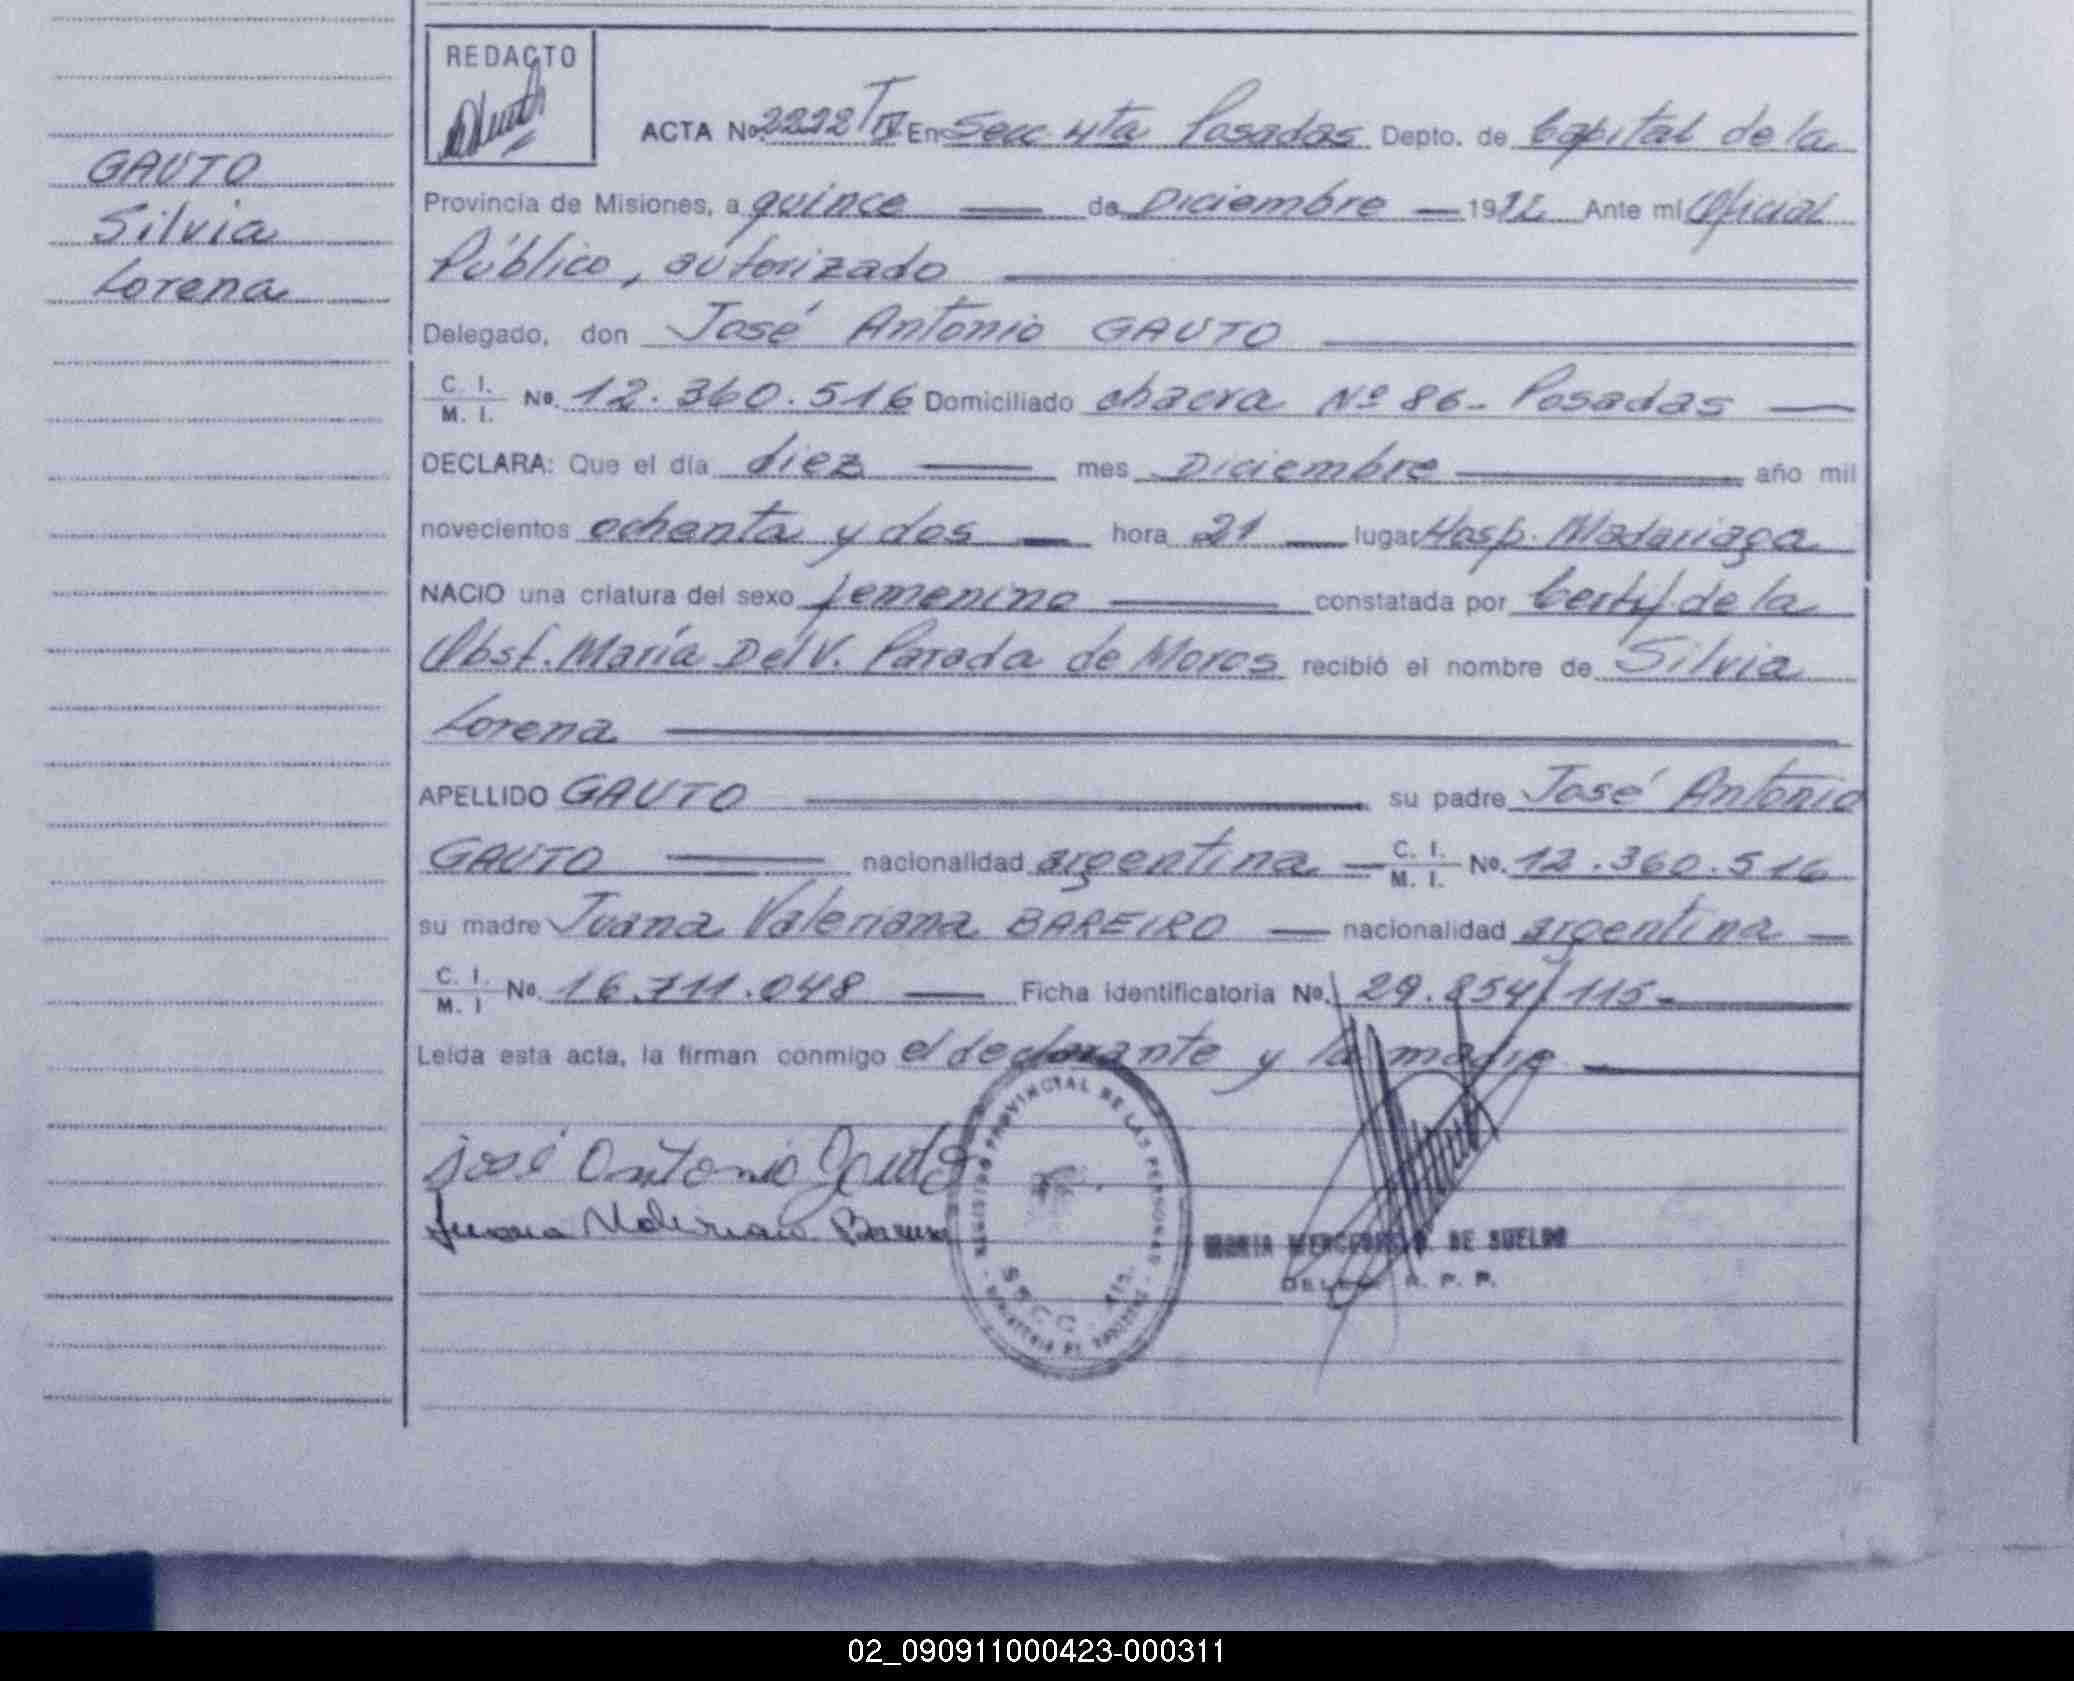 REDACTO
GAUTO
Silvia
Lorena
ACTA No. 2222 T IV En Secc 4ta Posadas Depto. de Capital de la
Provincia de Misiones, a quince de Diciembre 1982 Ante mi Oficial
Público, autorizado
Delegado, don José Antonio GAUTO
C. I. M. I. No. 12.360.516 Domiciliado chacra Nº 86- Posadas
DECLARA: Que el día diez mes Diciembre año mil
novecientos ochenta y dos hora 21 lugar Hosp. Madariaga
NACIO una criatura del sexo femenino constatada por Certif de la
Obst. María Del V. Parada de Moros recibió el nombre de Silvia
Lorena
APELLIDO GAUTO su padre José Antonio
GAUTO nacionalidad argentina C. I. M. I. No. 12.360.516
su madre Juana Valeriana BAREIRO nacionalidad argentina
C. I. M. I No. 16.711.048 Ficha identificatoria No. 29.854/115-
Leída esta acta, la firman conmigo el declarante y la madre
José Antonio Gauto
Juana Valeriana
REGISTRO PROVINCIAL DE LAS PERSONAS
SECC. 4ta.
MARIA MERCEDES DE SUELDO
R. P. P.
02_090911000423-000311